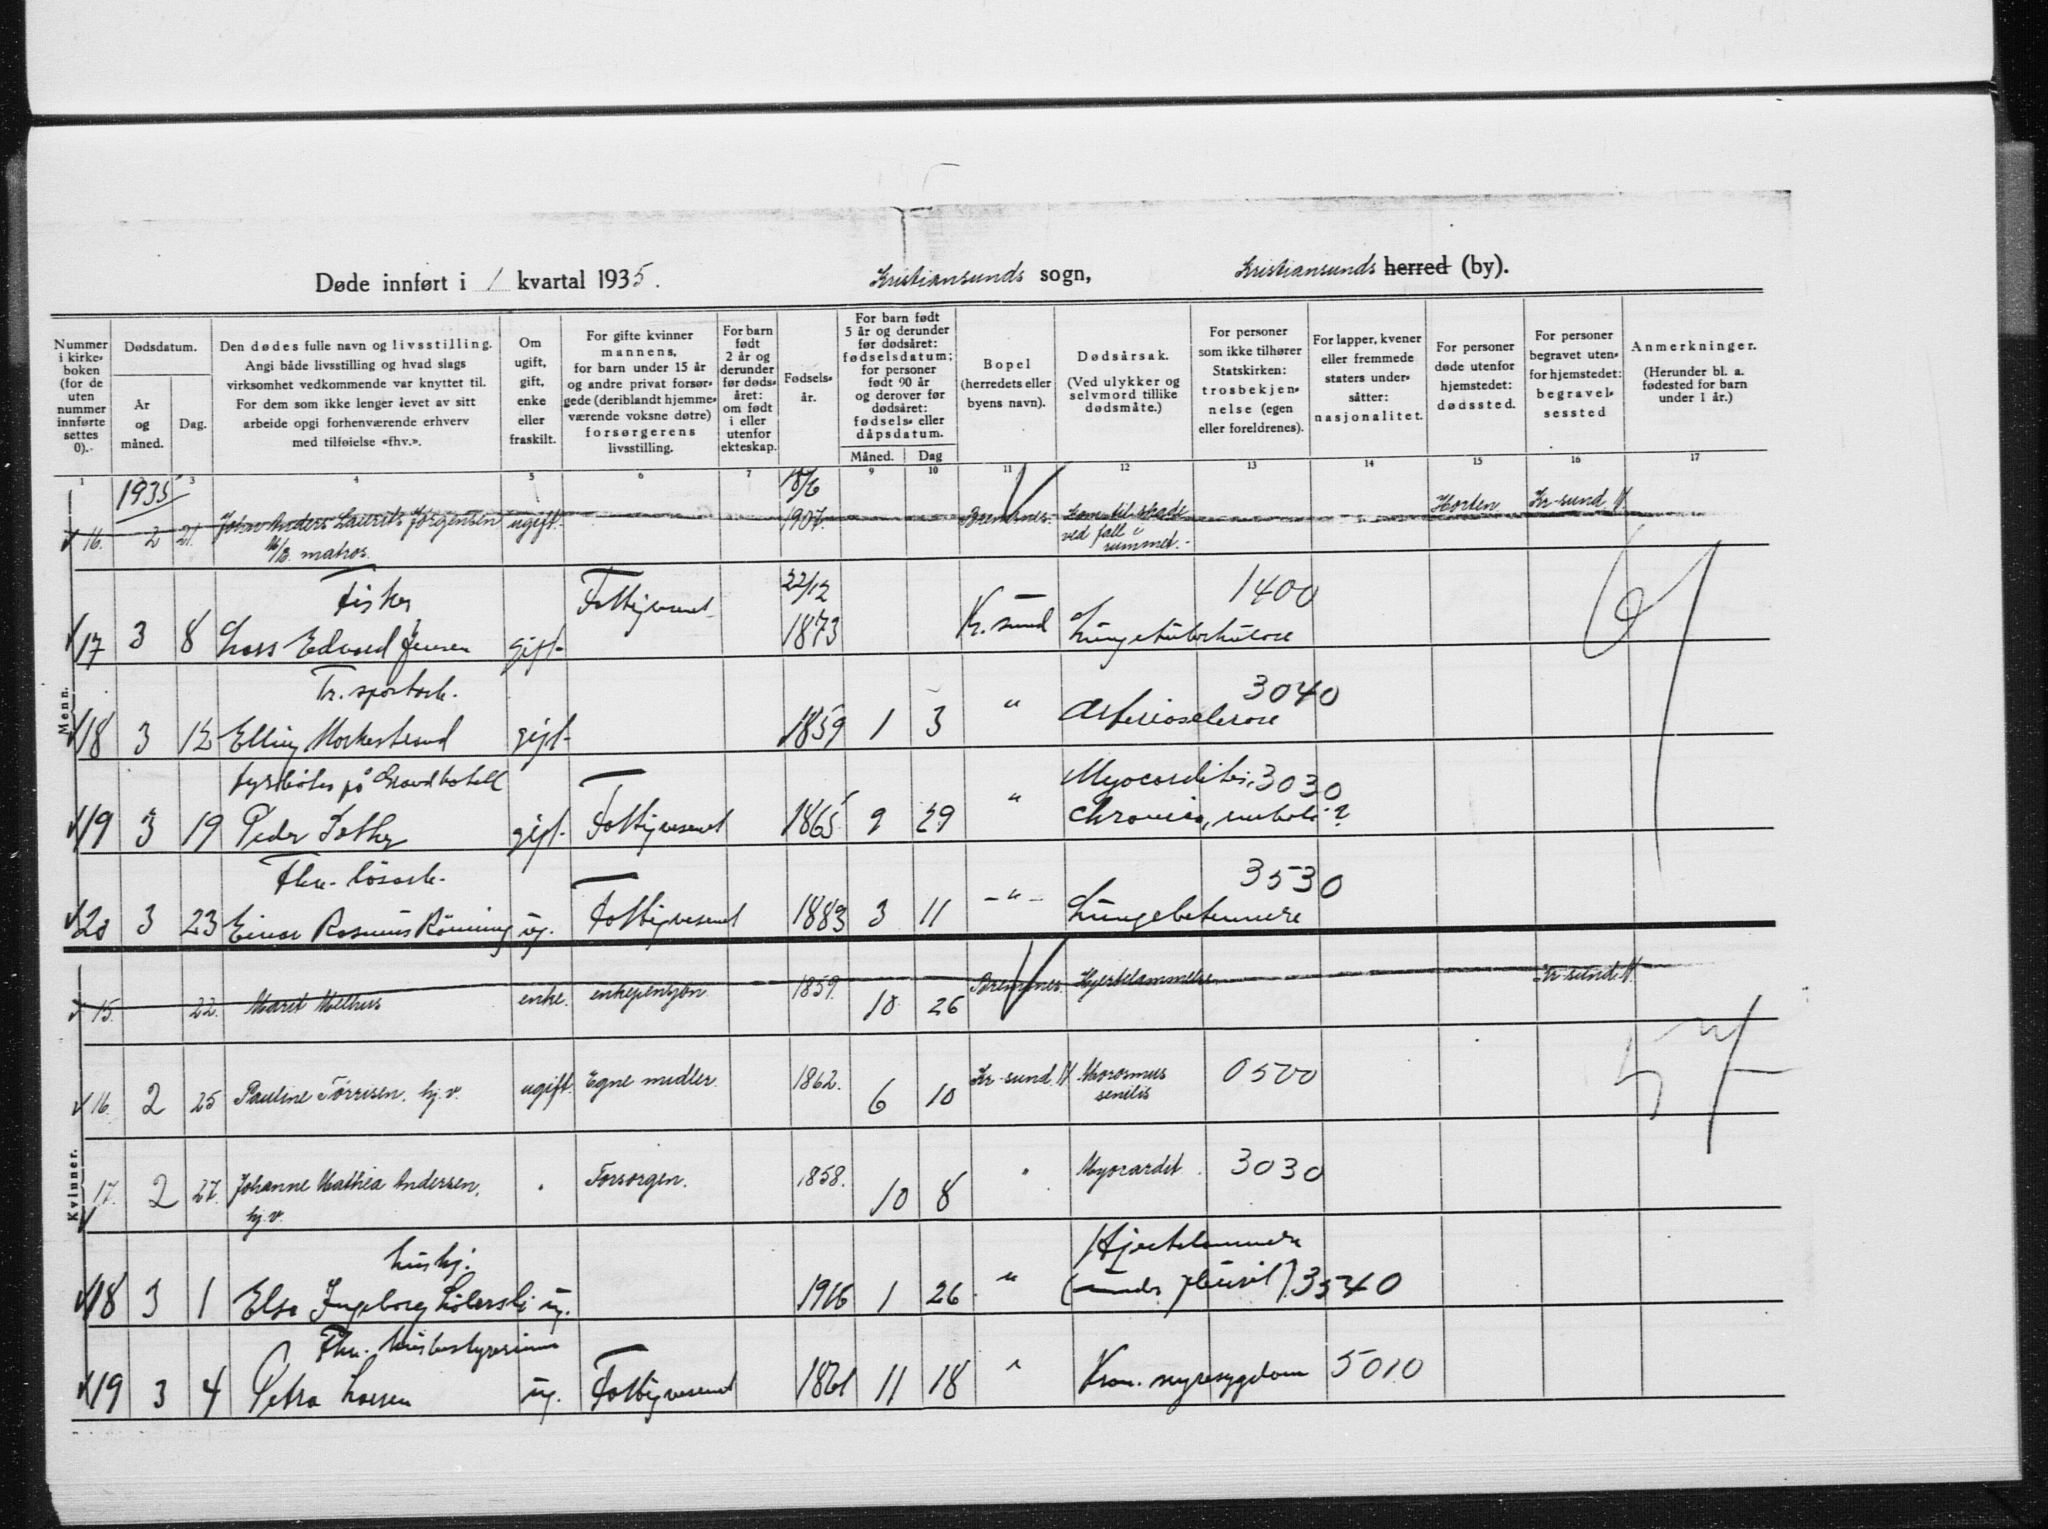 Døde innført i 1 kvartal 1935. Kristiansunds sogn, Kristiansunds herred (by).
Nummer i kirkeboken (for de uten nummer innførte settes 0).
Dødsdatum.
År og måned.
Dag.
Den dødes fulle navn og livsstilling.
Angi både livsstilling og hvad slags
virksomhet vedkommende var knyttet til.
For dem som ikke lenger levet av sitt
arbeide opgi forhenværende erhverv
med tilføielse «fhv.».
Om ugift, gift, enke eller fraskilt.
For gifte kvinner
mannens,
for barn under 15 år
og andre privat forsør-
gede (deriblandt hjemme-
værende voksne døtre)
forsørgerens
livsstilling.
For barn
født
2 år og
derunder
før døds-
året:
om født
i eller
utenfor
ekteskap.
Fødsels-
år.
For barn født
5 år og derunder
før dødsåret:
fødselsdatum;
for personer
født 90 år
og derover før
dødsåret:
fødsels- eller
dåpsdatum.
Måned. Dag
Bopel
(herredets eller
byens navn).
Dødsårsak.
(Ved ulykker og
selvmord tillike
dødsmåte.)
For personer
som ikke tilhører
Statskirken:
trosbekjen-
nelse (egen
eller foreldrenes).
For lapper, kvener
eller fremmede
staters under-
såtter:
nasjonalitet.
For personer
døde utenfor
hjemstedet:
dødssted.
For personer
begravet uten-
for hjemstedet:
begravel-
sessted
Anmerkninger.
(Herunder bl. a.
fødested for barn
under 1 år.)
1 3 4 5 6 7 9 10 11 12 13 14 15 16 17
1935
Menn.
16. 2 21. John Anders Laurits Jørgensen ugift. 18/6 1907. Bremsnes. Kom til skade Horten Kr-sund N
matros. ved fall i
rummet.
Fisker Fattigvesenet 22/12 1400
17 3 8 Lars Edvard Jensen gift 1873 Kr. sund Lungetuberkulose
Tr. sportarb. 3040
18 3 12 Elling Morkestrand gift 1859 1 3 " Arteriosclerose
fyrbøter på Grand hotell Myocarditis 3030
19 3 19 Peder gift Fattigvesenet 1865 9 29 " chronica, emboli?
Fhv. løsarb. 3530
20 3 23 Einar Rasmus Rönning ug. Fattigvesenet 1883 3 11 - " - Lungebetennelse
Kvinner.
15. 22. Maret Melhus enke. enkepensjon 1859. 10 26 Bremsnes. Hjertelammelse Kr-sund N.
16. 2 25 Pauline Tørrisen. hj. v. ugift. Egne midler. 1862. 6 10 Kr-sund. N Marasmus 0500
senilis
17. 2 27. Johanne Mathea Andersen. " Forsorgen. 1858. 10 8 " Myocardit. 3030
hj. v.
hushj. Hjertelammelse
18 3 1 Elsa Ingeborg ug. 1916 1 26 " (under pleurit) 3540
Fhv. husbestyrerinne
19 3 4 Petra Larsen ug. Fattigvesenet 1861 11 18 " Kron. nyresygdom 5010